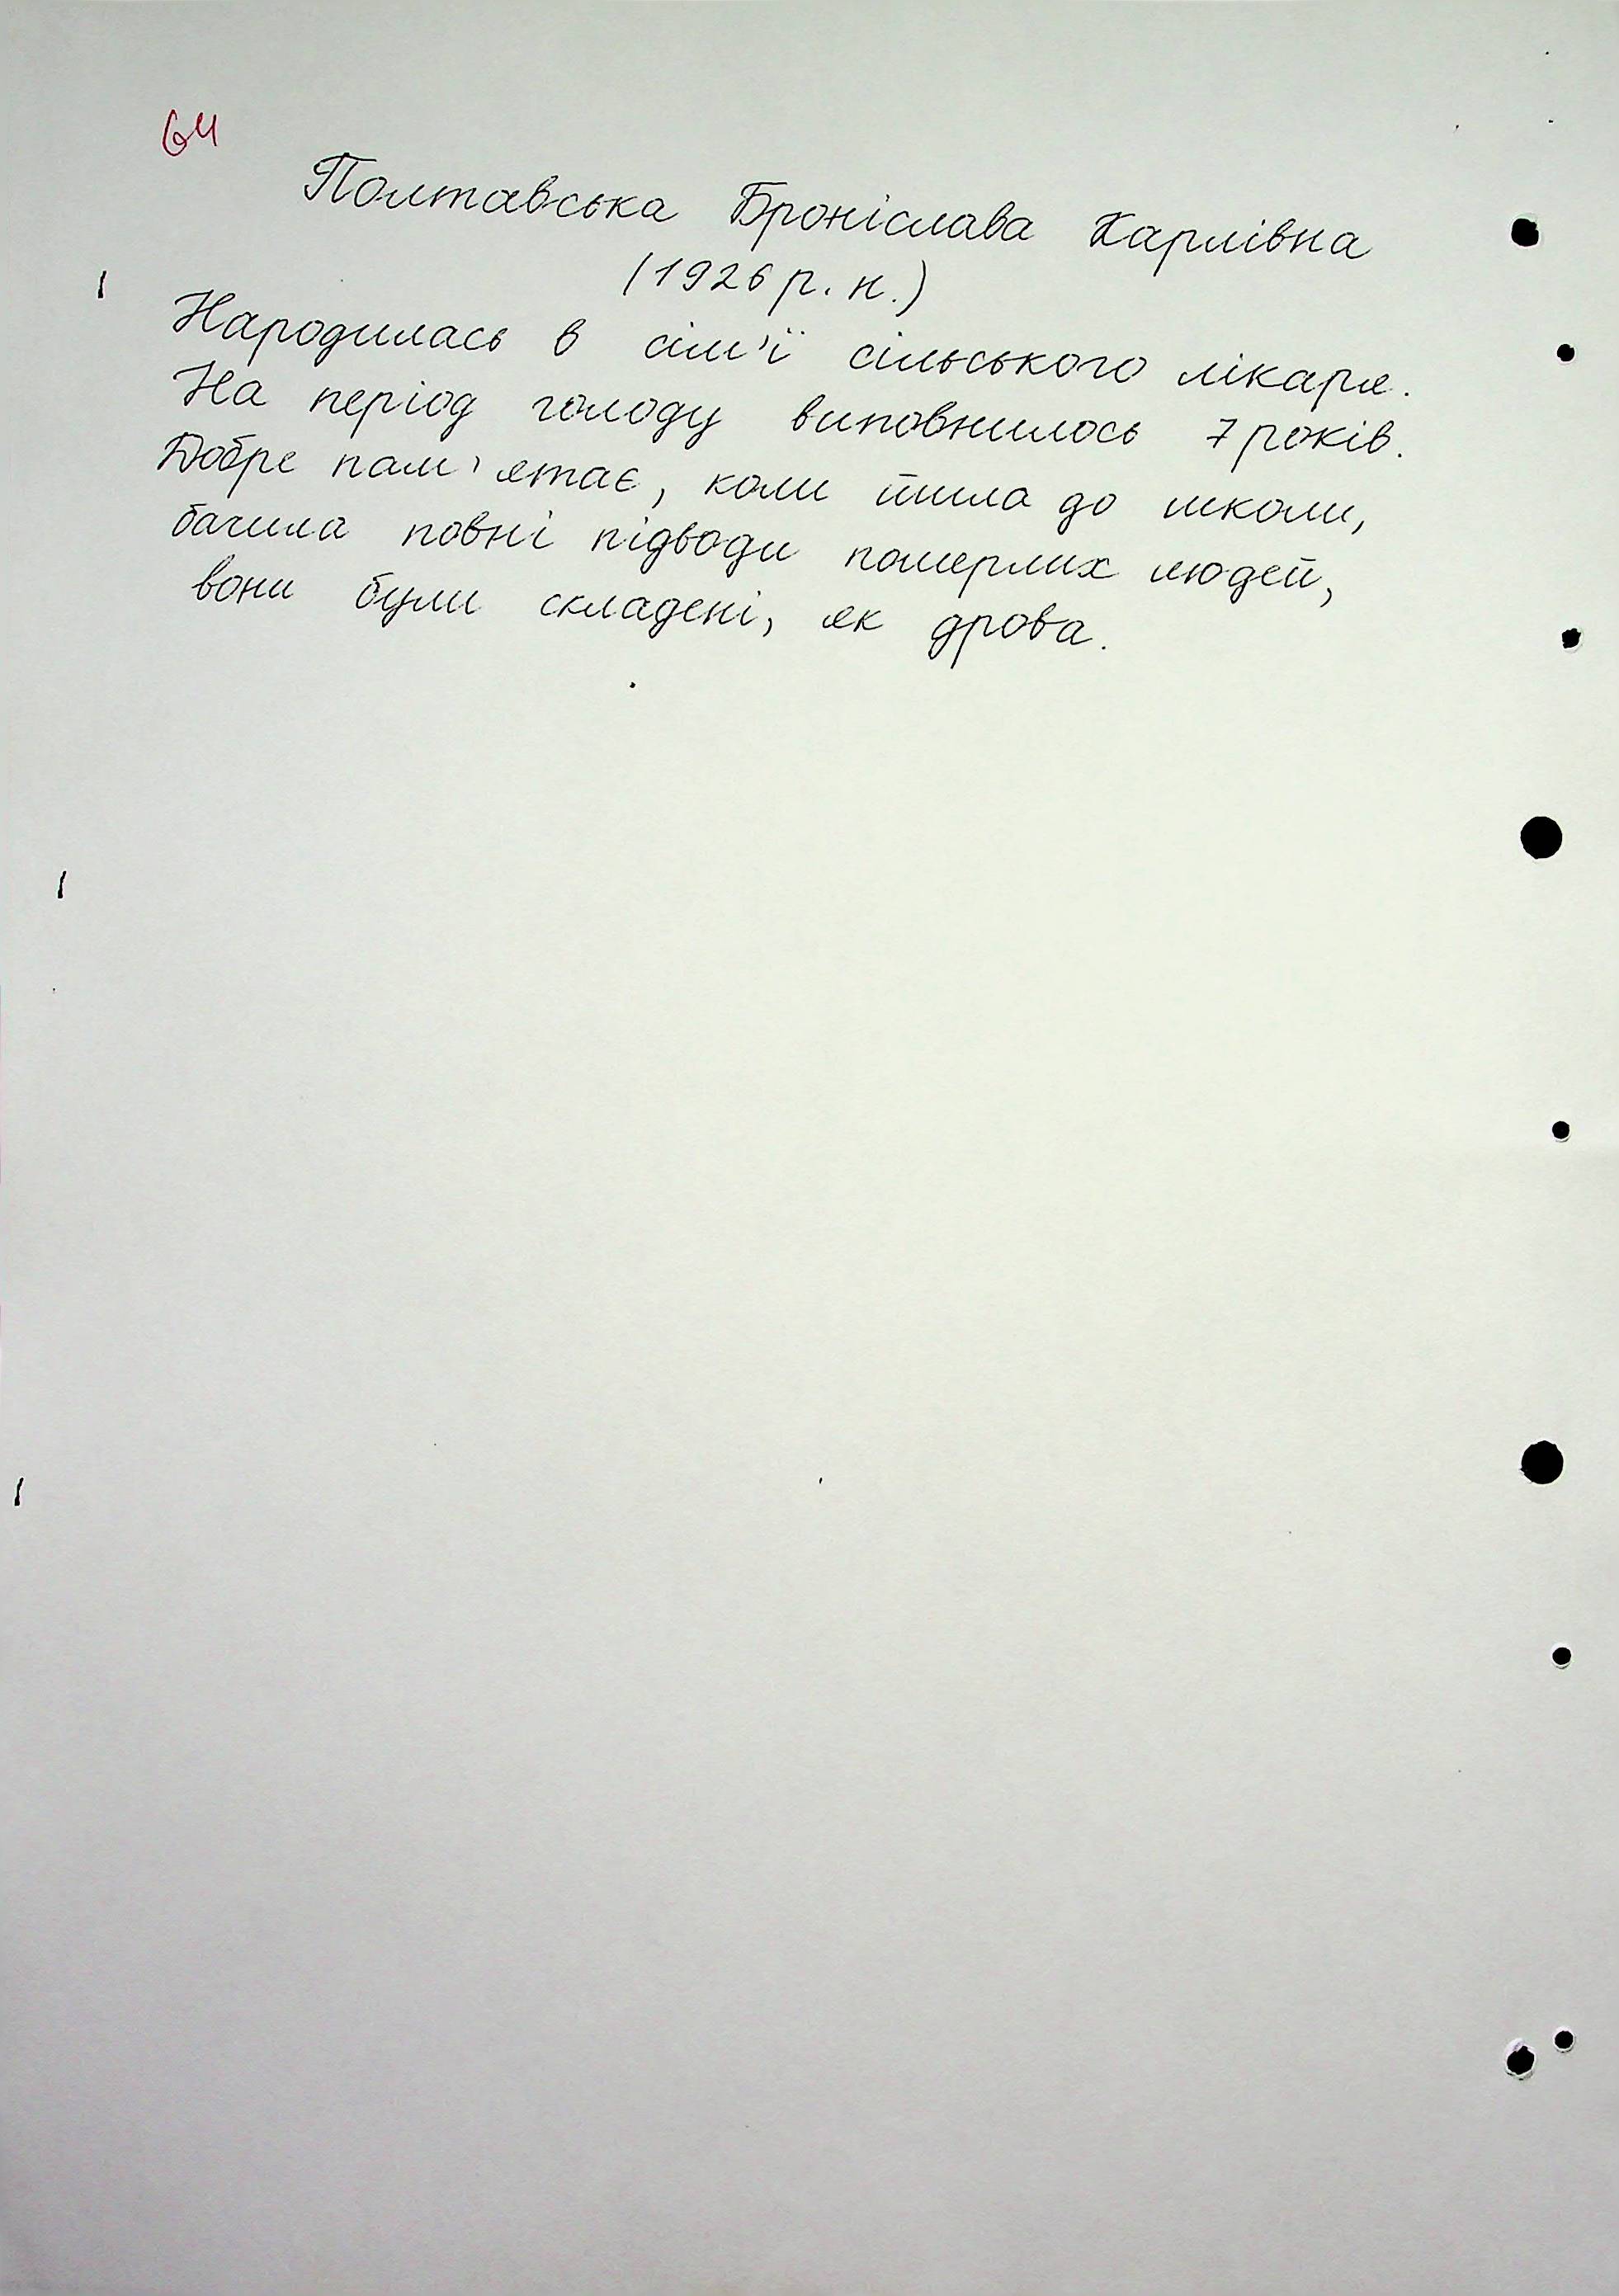 64
Полтавська Броніслава Карлівна
(1926 р. н.)
Народилась в сім'ї сільського лікаря.
На період голоду виповнилось 7 років.
Добре пам'ятає, коли йшла до школи,
бачила повні підводи померлих людей,
вони були складені, як дрова.